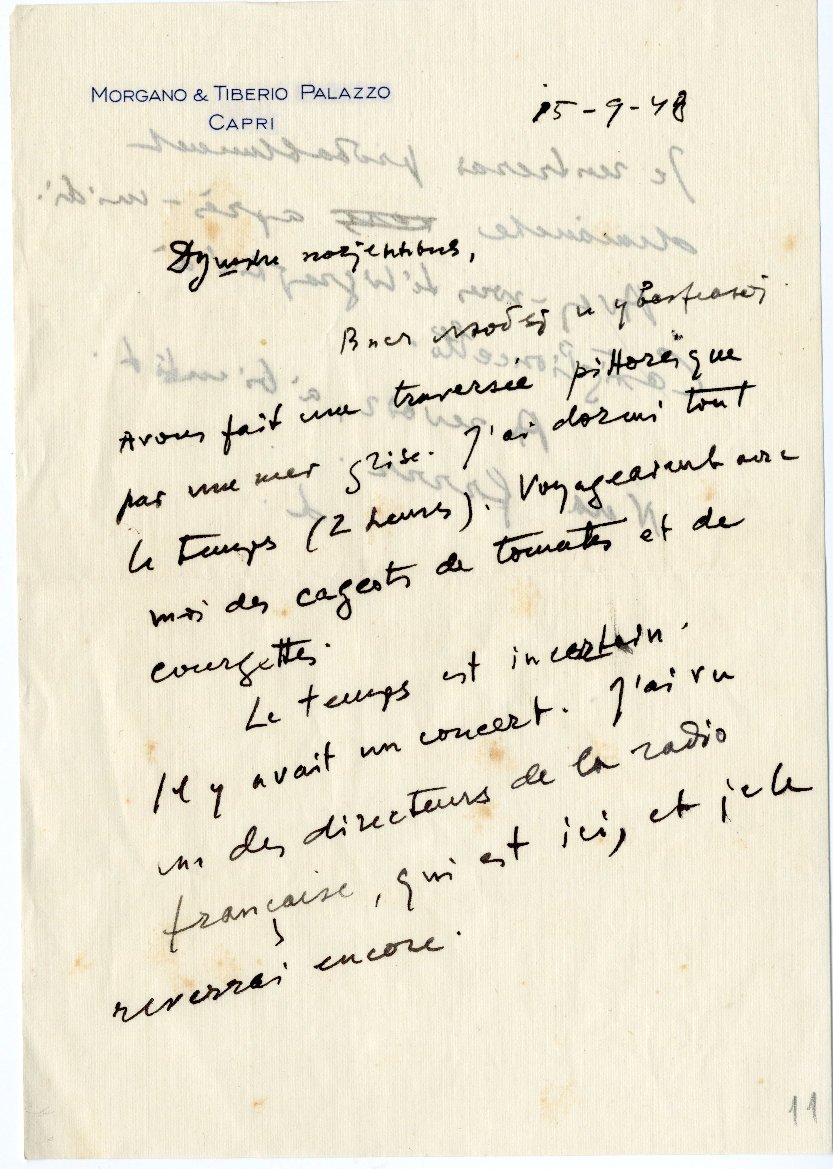 MORGANO & TIBERIO PALAZZO
CAPRI
15-9-48
Avons fait une traversée pittoresque
par une mer grise. J'ai dormi tout
le temps (2 heures). Voyageaient avec
moi des cageots de tomates et de
courgettes.
Le temps est incertain.
Il y avait un concert. J'ai vu
un des directeurs de la radio
française, qui est ici, et je le
reverrai encore.
11